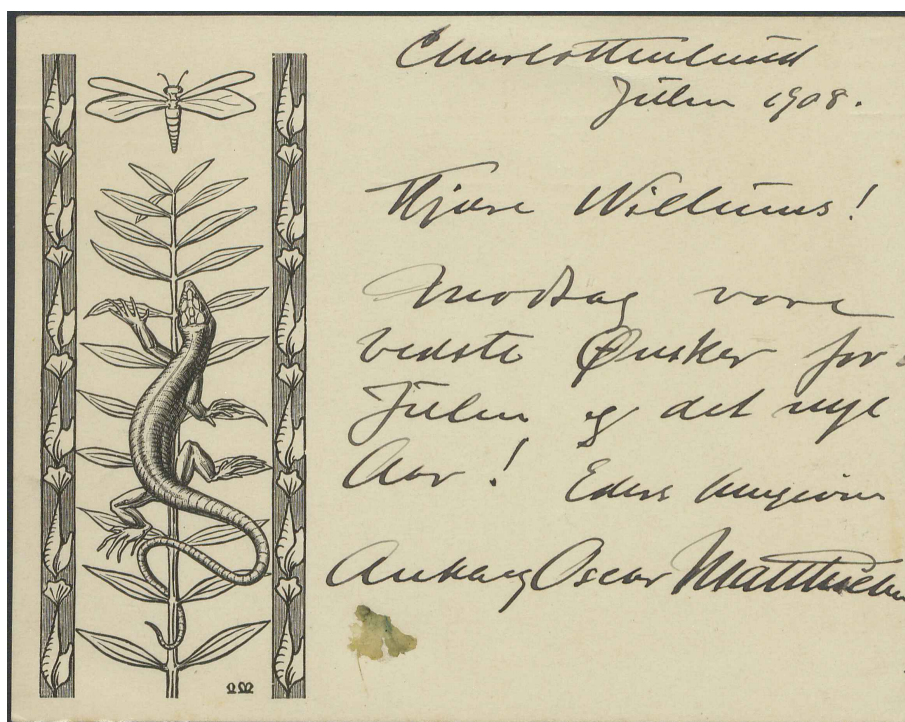 Charlottenlund
Julen 1908.
Kjære Willums!
Modtag vore
bedste Ønsker for
Julen og det nye
Aar!
Eders hengivne
Oscar Matthiesen
OM